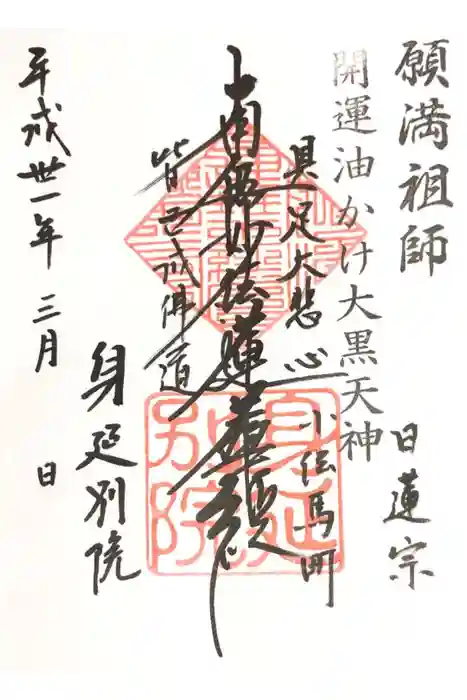 願満祖師
日蓮宗
開運油かけ大黒天神
具足大悲心
小伝馬町
南無妙法蓮華経
皆已成佛道
身延別院
平成丗一年 三月 日
身延
別院